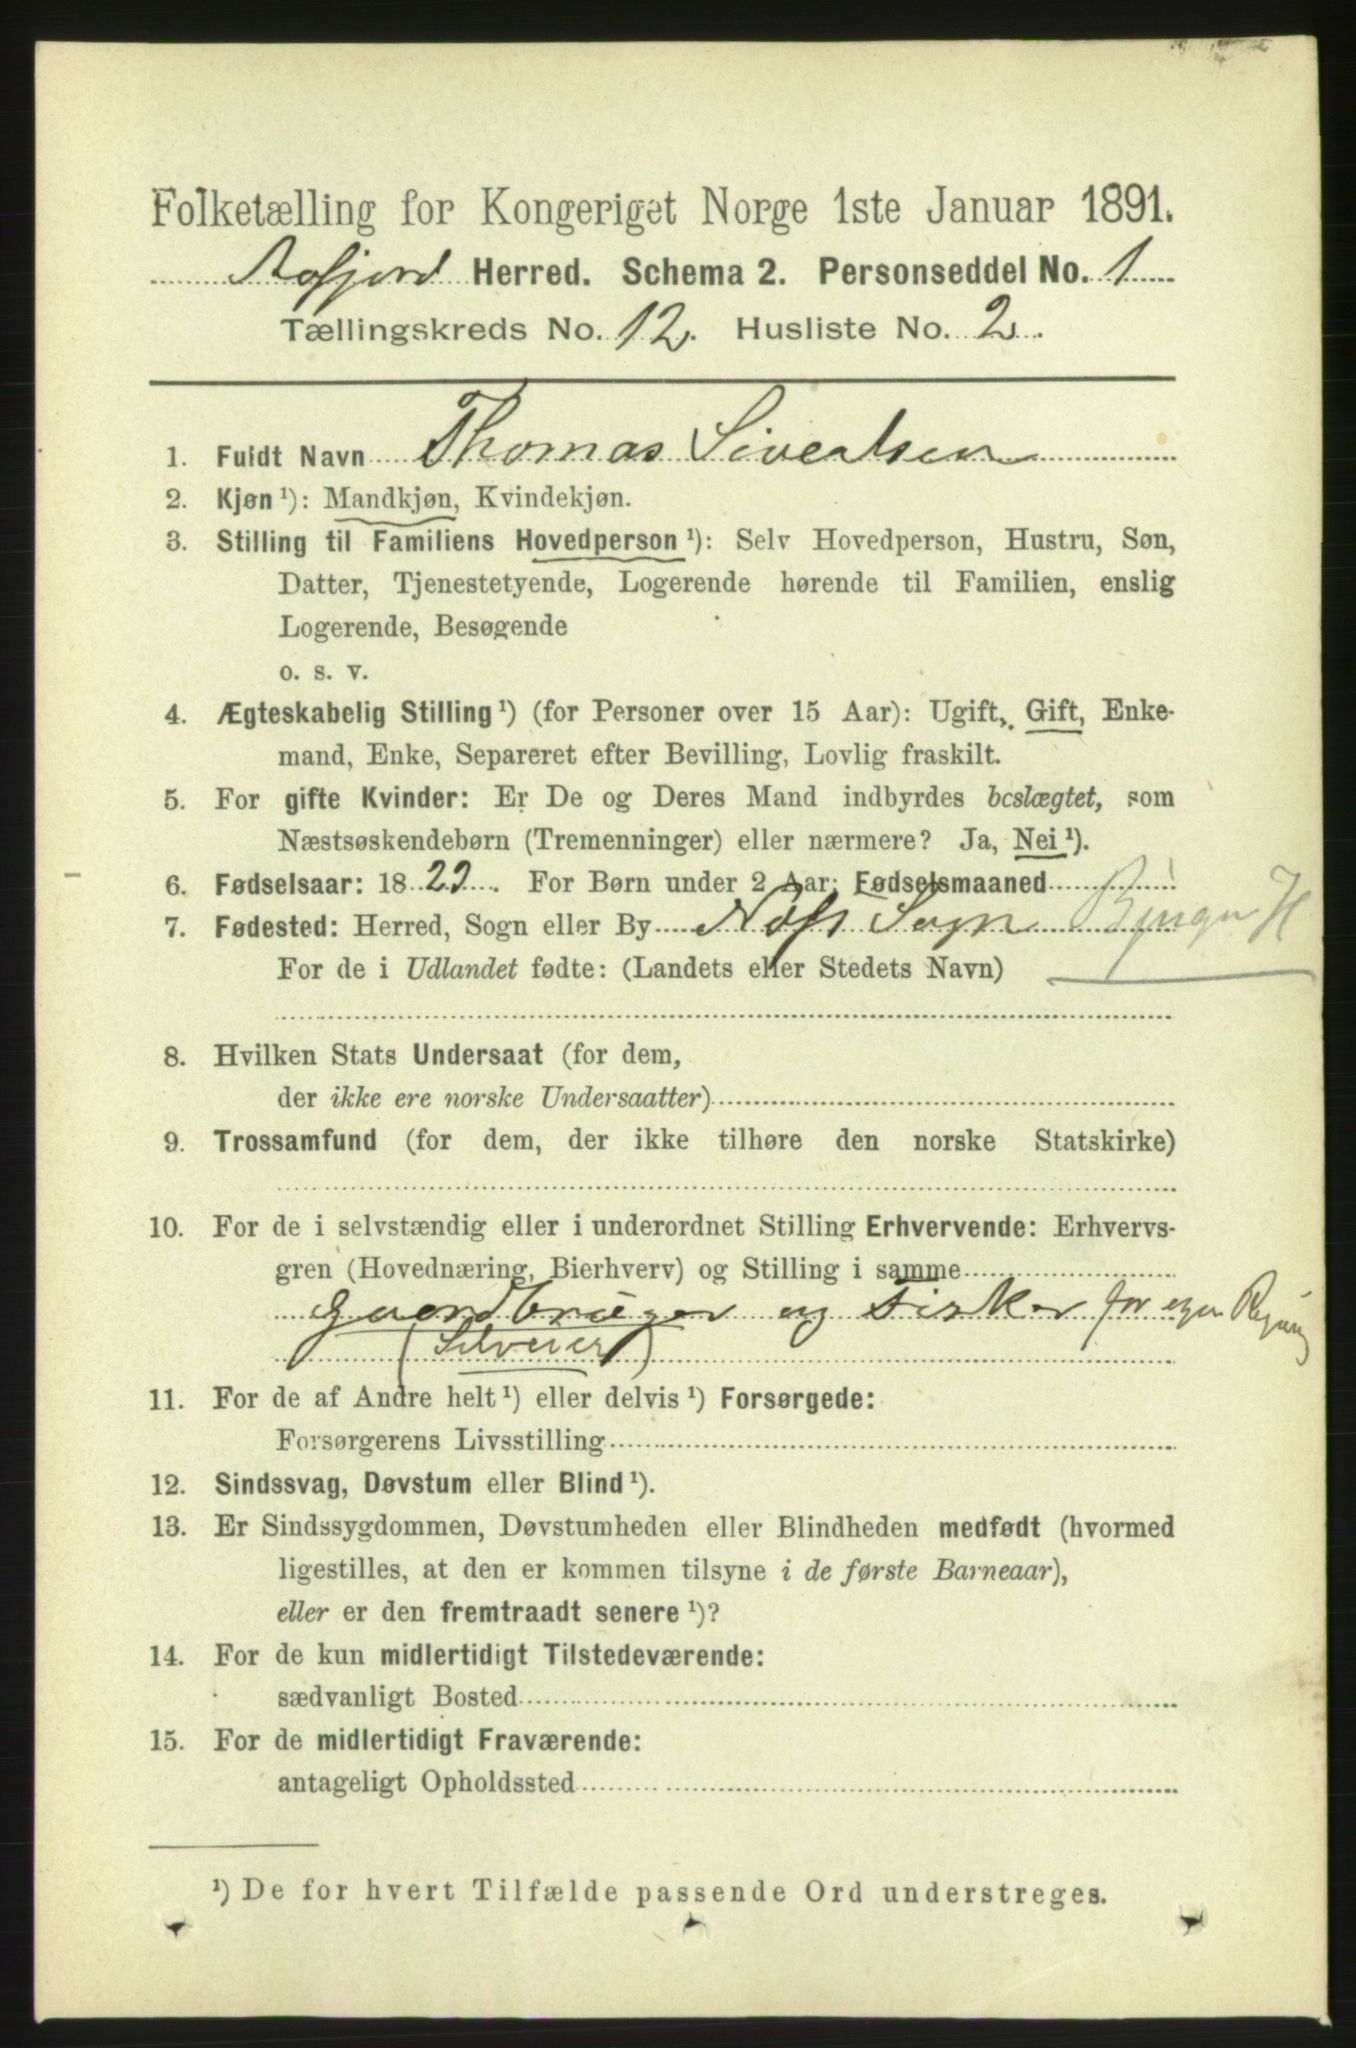 Folketælling for Kongeriget Norge 1ste Januar 1891.
Aafjord Herred. Schema 2. Personseddel No. 1
Tællingskreds No. 12. Husliste No. 2.
1. Fuldt Navn Thomas Sivertsen
2. Kjøn ¹): Mandkjøn, Kvindekjøn.
3. Stilling til Familiens Hovedperson ¹): Selv Hovedperson, Hustru, Søn,
Datter, Tjenestetyende, Logerende hørende til Familien, enslig
Logerende, Besøgende
o. s. v.
4. Ægteskabelig Stilling ¹) (for Personer over 15 Aar): Ugift, Gift, Enke-
mand, Enke, Separeret efter Bevilling, Lovlig fraskilt.
5. For gifte Kvinder: Er De og Deres Mand indbyrdes beslægtet, som
Næstsøskendebørn (Tremenninger) eller nærmere? Ja, Nei ¹).
6. Fødselsaar: 18 . For Børn under 2 Aar: Fødselsmaaned
7. Fødested: Herred, Sogn eller By Næss Sogn
For de i Udlandet fødte: (Landets eller Stedets Navn)
8. Hvilken Stats Undersaat (for dem,
der ikke ere norske Undersaatter)
9. Trossamfund (for dem, der ikke tilhøre den norske Statskirke)
10. For de i selvstændig eller i underordnet Stilling Erhvervende: Erhvervs-
gren (Hovednæring, Bierhverv) og Stilling i samme
Gaardbruger og Fisker for egen Regning
(Selveier)
11. For de af Andre helt ¹) eller delvis ¹) Forsørgede:
Forsørgerens Livsstilling
12. Sindssvag, Døvstum eller Blind ¹).
13. Er Sindssygdommen, Døvstumheden eller Blindheden medfødt (hvormed
ligestilles, at den er kommen tilsyne i de første Barneaar),
eller er den fremtraadt senere ¹)?
14. For de kun midlertidigt Tilstedeværende:
sædvanligt Bosted
15. For de midlertidigt Fraværende:
antageligt Opholdssted
¹) De for hvert Tilfælde passende Ord understreges.